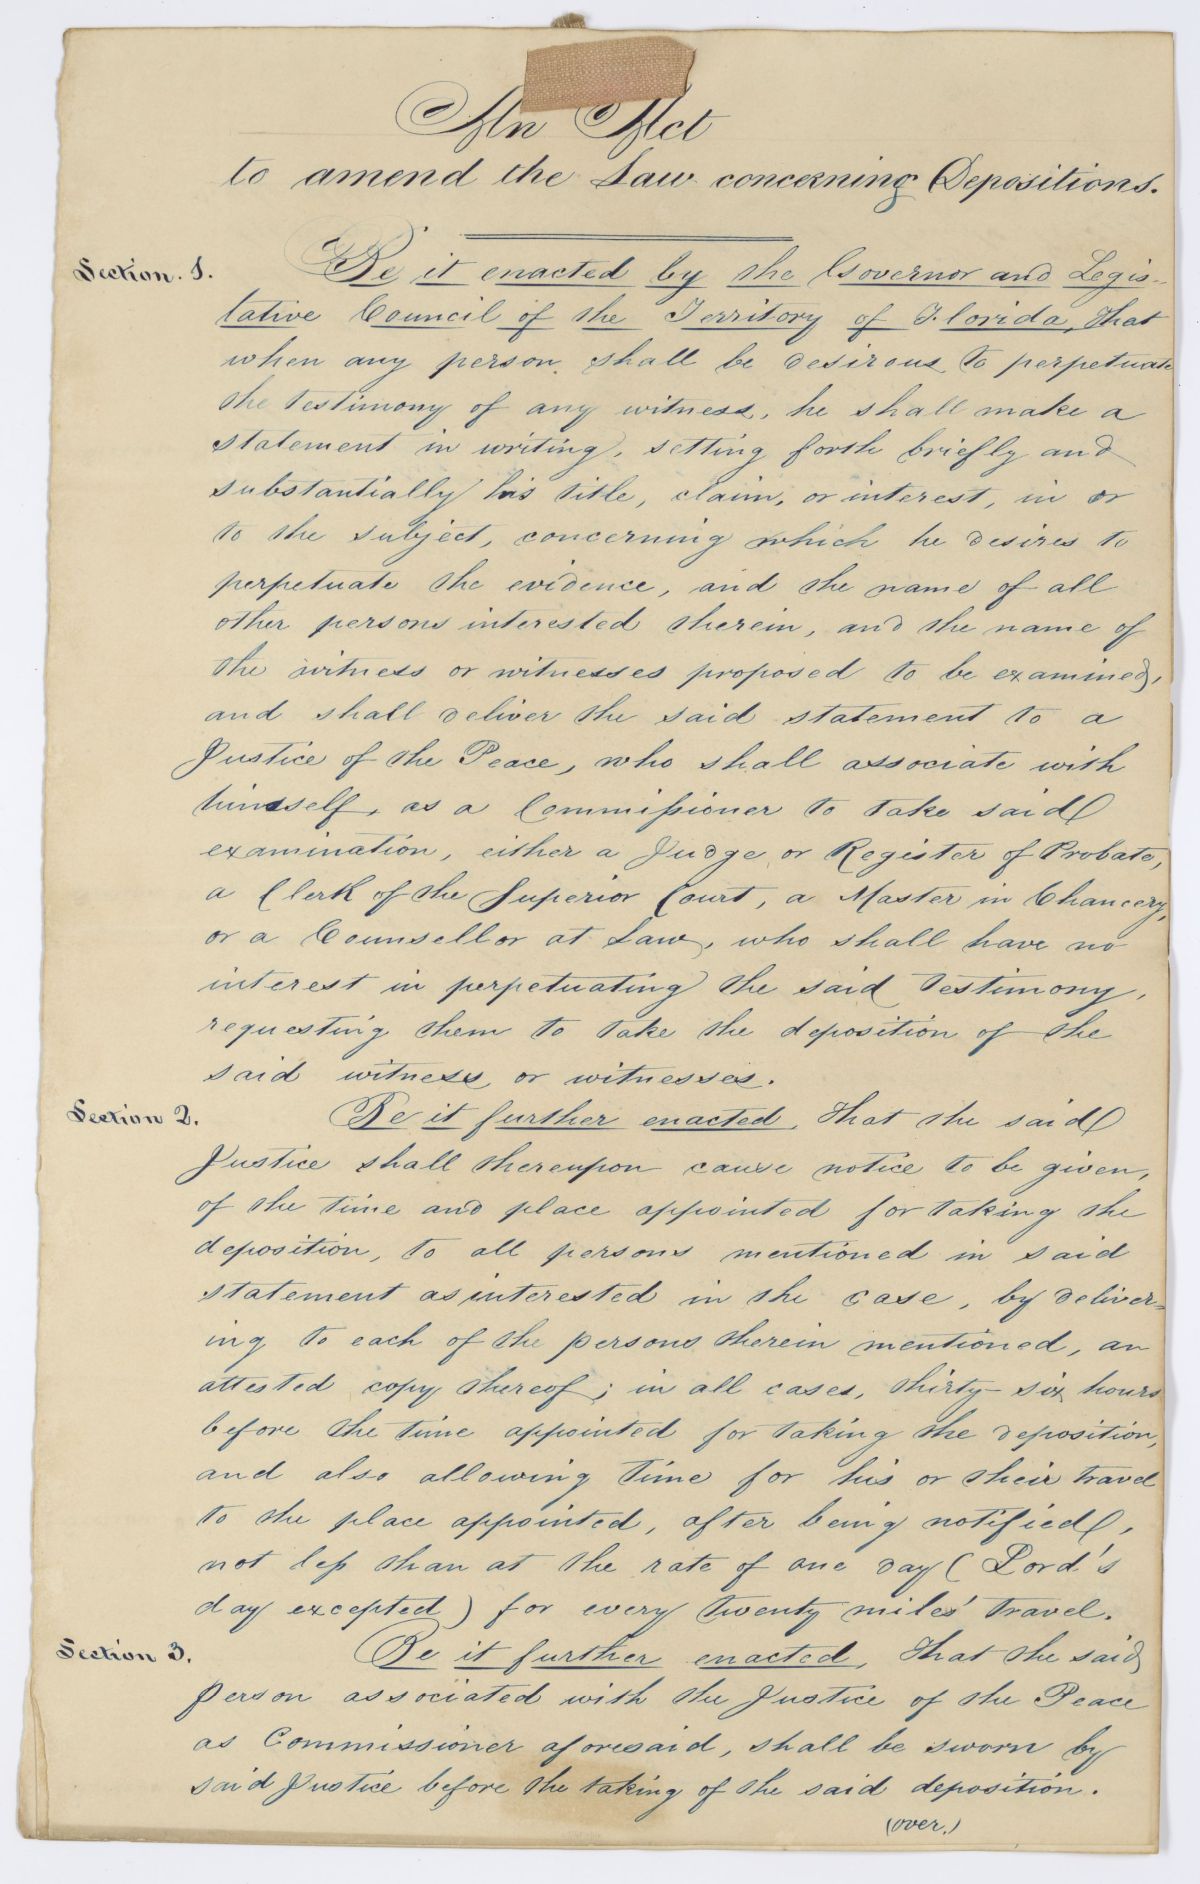 An Act
to amend the Law concerning Depositions.
Section. 1. Be it enacted by the Governor and Legis-
lative Council of the Territory of Florida, that
when any person shall be desirous to perpetuate
the testimony of any witness, he shall make a
statement in writing, setting forth briefly and
substantially his title, claim, or interest, in or
to the subject, concerning which he desires to
perpetuate the evidence, and the name of all
other persons interested therein, and the name of
the witness or witnesses proposed to be examined,
and shall deliver the said statement to a
Justice of the Peace, who shall associate with
himself, as a Commissioner to take said
examination, either a Judge or Register of Probate,
a Clerk of the Superior Court, a Master in Chancery,
or a Counsellor at Law, who shall have no
interest in perpetuating the said testimony,
requesting them to take the deposition of the
said witness or witnesses.
Section 2. Be it further enacted, that the said
Justice shall thereupon cause notice to be given,
of the time and place appointed for taking the
deposition, to all persons mentioned in said
statement as interested in the case, by deliver=
ing to each of the persons therein mentioned, an
attested copy thereof; in all cases, thirty-six hours
before the time appointed for taking the deposition,
and also allowing time for his or their travel
to the place appointed, after being notified,
not less than at the rate of one day (Lord's
day excepted) for every twenty miles' travel.
Section 3. Be it further enacted, that the said
person associated with the Justice of the Peace
as Commissioner aforesaid, shall be sworn by
said Justice before the taking of the said deposition.
(over.)